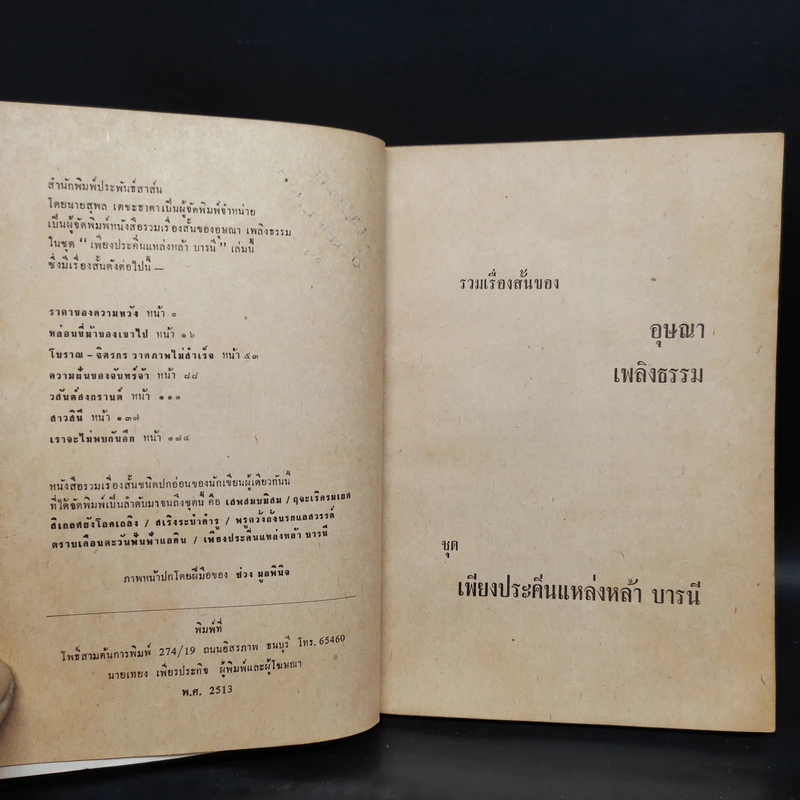 สำนักพิมพ์ประพันธ์สาส์น
โดยนายสุพล เตชะธาดาเป็นผู้จัดพิมพ์จำหน่าย
เป็นผู้จัดพิมพ์หนังสือรวมเรื่องสั้นของอุษณา เพลิงธรรม
ในชุด “ เพียงประคิ่นแหล่งหล้า บารนี ” เล่มนี้
ซึ่งมีเรื่องสั้นดังต่อไปนี้ —
ราคาของความหวัง หน้า ๑
หล่อนขี่ม้าของเขาไป หน้า ๑๖
โบราณ – จิตรกร วาดภาพไม่สำเร็จ หน้า ๕๓
ความฝันของจันทร์จ้า หน้า ๘๘
วสันต์สงกรานต์ หน้า ๑๑๑
สาวสินี หน้า ๑๓๗
เราจะไม่พบกันอีก หน้า ๑๗๔
หนังสือรวมเรื่องสั้นชนิดปกอ่อนของนักเขียนผู้เดียวกันนี้
ที่ได้จัดพิมพ์เป็นลำดับมาจนถึงชุดนี้ คือ เสพสมบมิสม / ฤจะเริดรมเยศ
สิเกลศยังโลดเถลิง / สเริงระบำคำรู / พรูดวั้งถั้งนรกแลสวรรค์
ตราบเดือนตะวันฟั่นฟ้าแลดิน / เพียงประคิ่นแหล่งหล้า บารนี
ภาพหน้าปกโดยฝีมือของ ช่วง มูลพินิจ
พิมพ์ที่
โพธิ์สามต้นการพิมพ์ 274/19 ถนนอิสรภาพ ธนบุรี โทร. 65460
นายเทยง เพียรประกิจ ผู้พิมพ์และผู้โฆษณา
พ.ศ. 2513
รวมเรื่องสั้นของ
อุษณา
เพลิงธรรม
ชุด
เพียงประคิ่นแหล่งหล้า บารนี